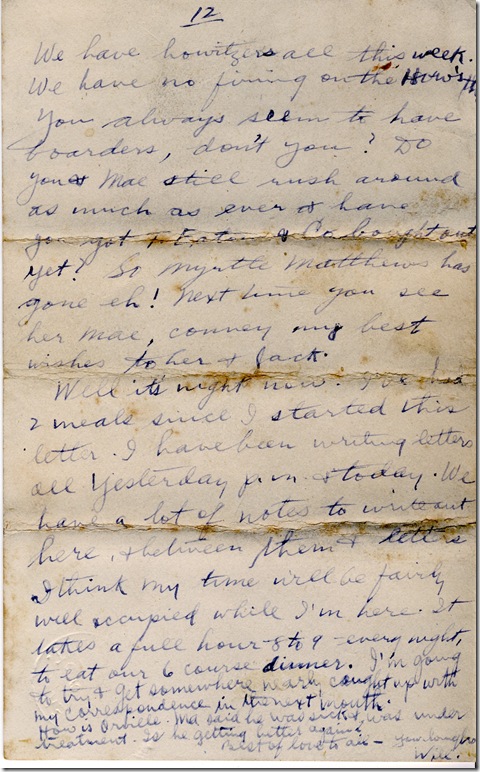 12
We have howitzers all this week.
We have no firing on the How's tho
You always seem to have
boarders, don't you? Do
you & Mae still rush around
as much as ever & have
you got T. Eaton & Co bought out
yet? So Myrtle Matthews has
gone eh! Next time you see
her Mae, convey my best
wishes to her & Jack.
Well it's night now. I've had
2 meals since I started this
letter. I have been writing letters
all yesterday p.m. & today. We
have a lot of notes to write out
here, & between them & letters
I think my time will be fairly
well occupied while I'm here. It
takes a full hour - 8 to 9 - every night,
to eat our 6 course dinner. I'm going
to try & get somewhere nearly caught up with
my correspondence in the next month.
How is Orville. Ma said he was sick & was under
treatment. Is he getting better again?
Best of love to all - your loving bro
Will.